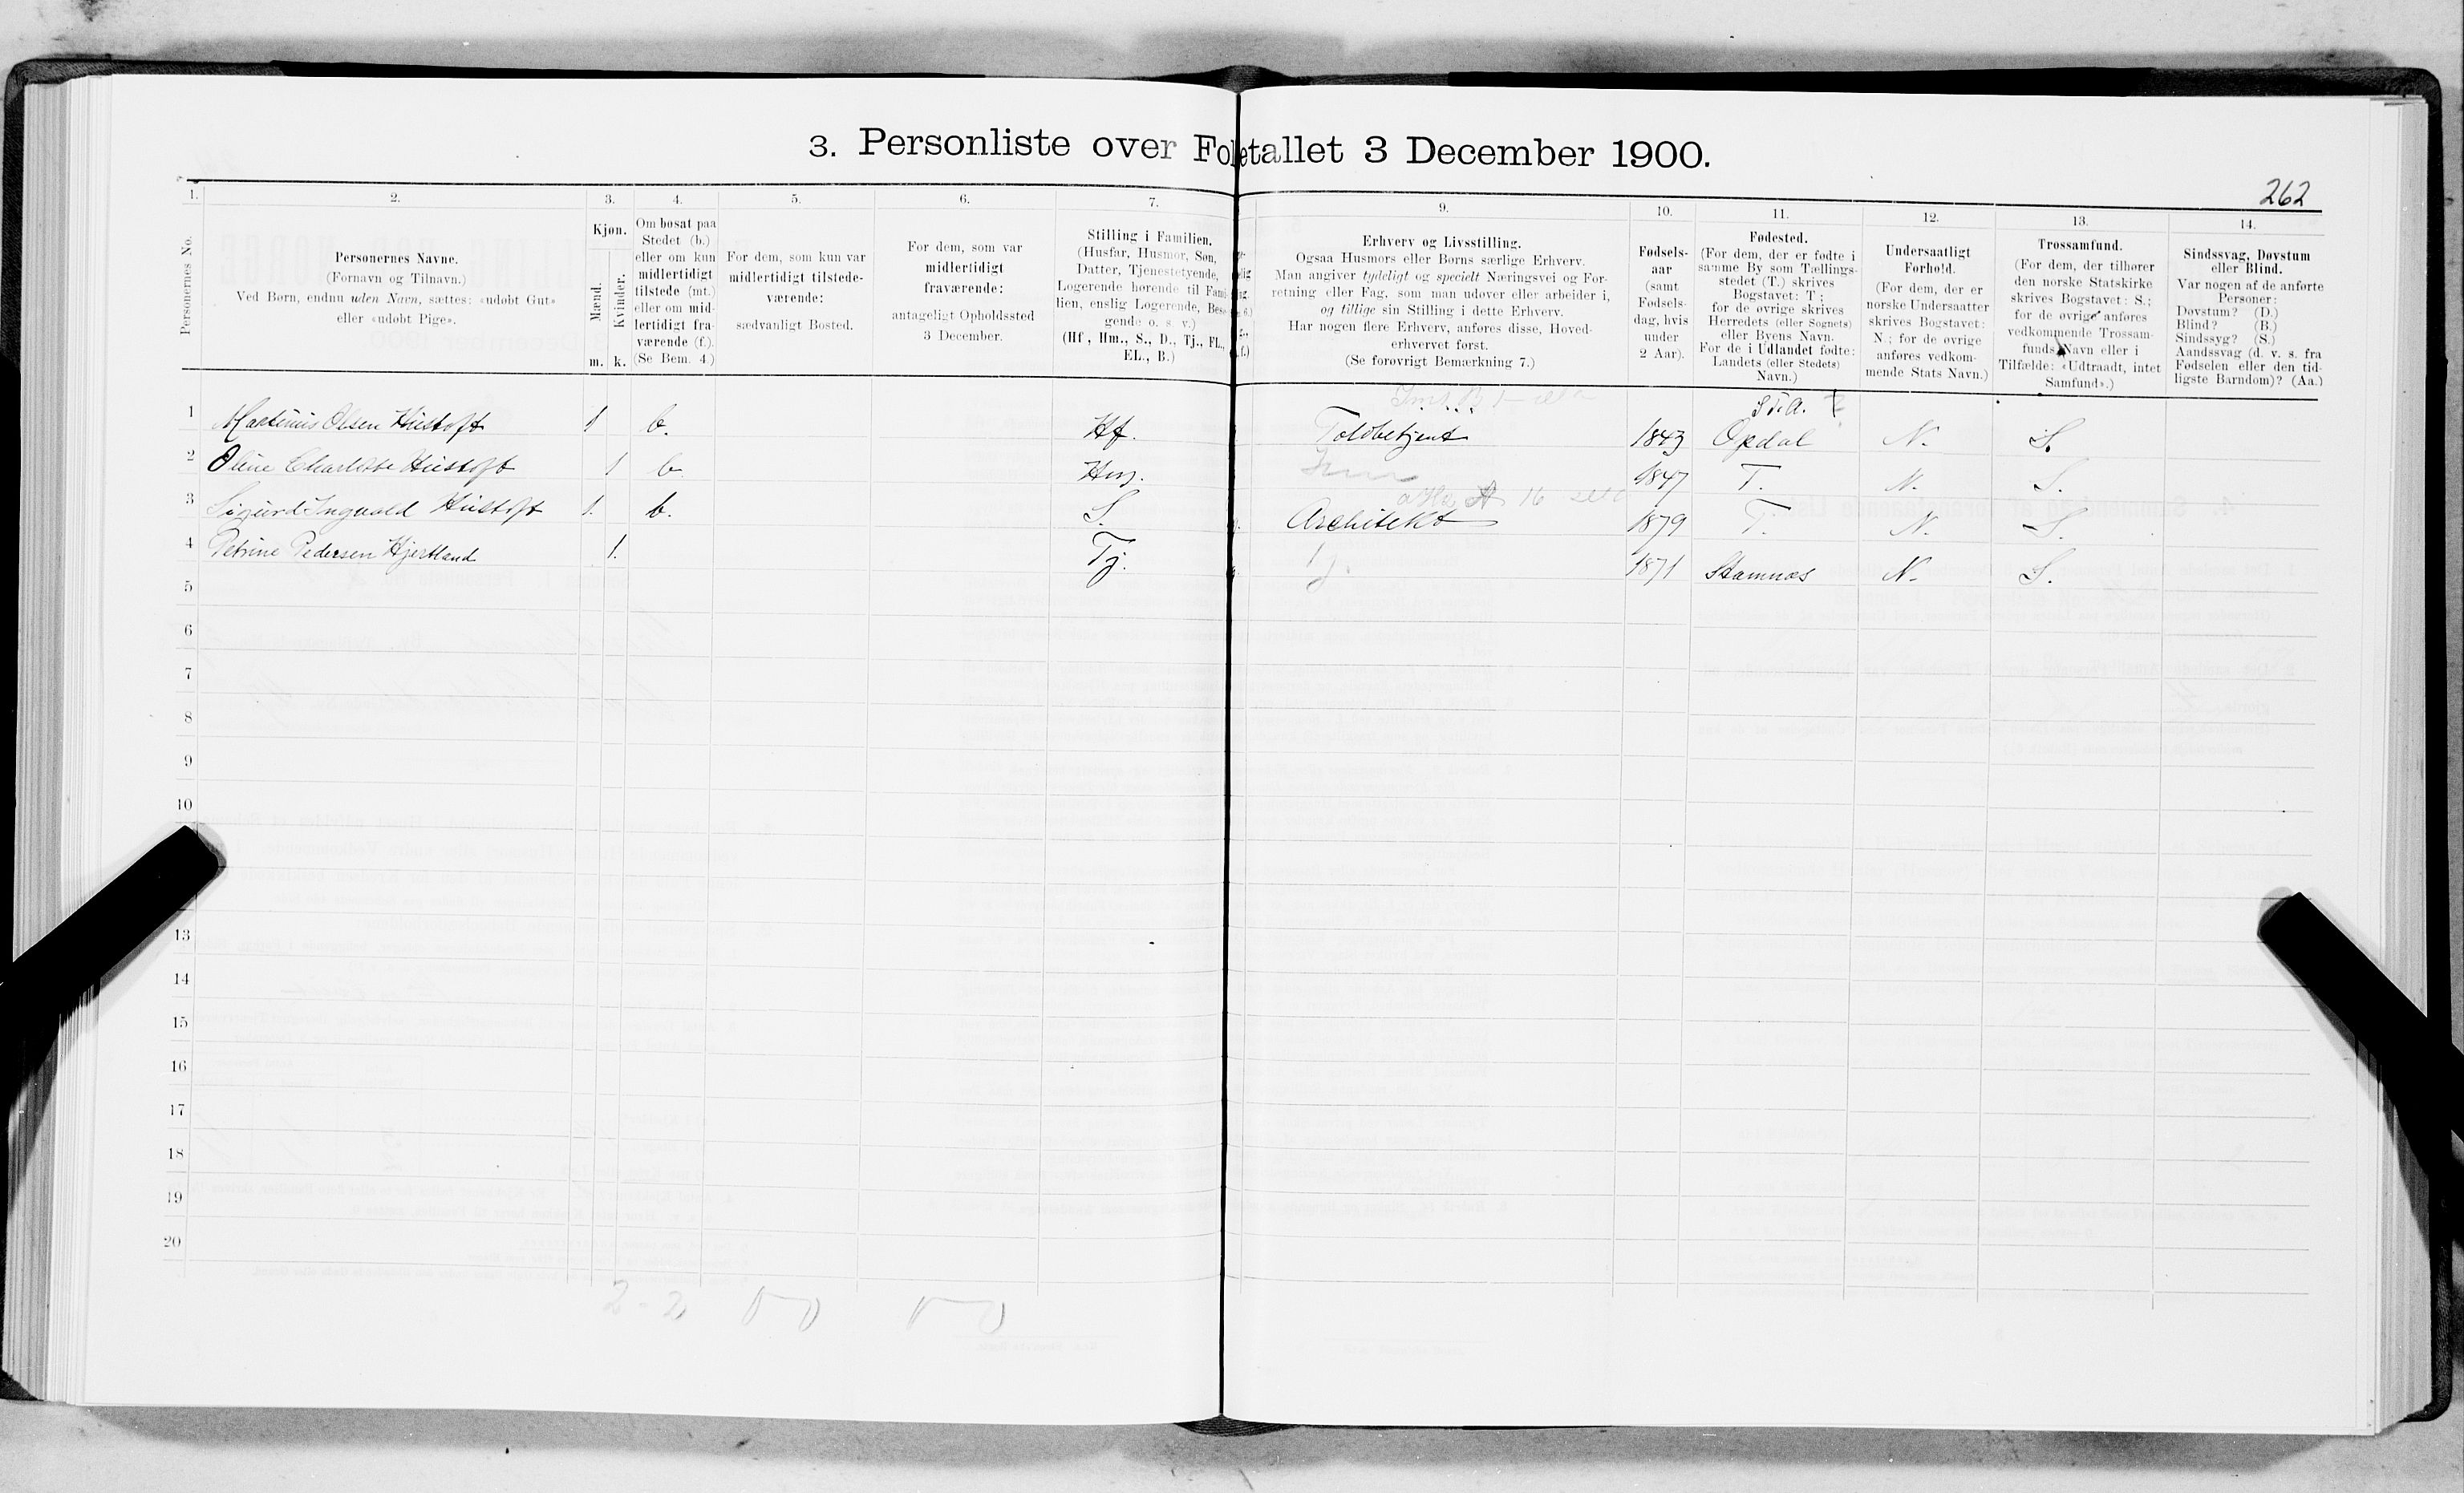 3. Personliste over Folketallet 3 December 1900.
262
1. 2. 3. 4. 5. 6. 7. 9. 10. 11. 12. 13. 14.
Personernes No.
Personernes Navne.
(Fornavn og Tilnavn.)
Ved Børn, endnu uden Navn, sættes: «udøbt Gut»
eller «udøbt Pige».
Kjøn.
Mænd.
Kvinder.
m. k.
Om bosat paa
Stedet (b.)
eller om kun
midlertidigt
tilstede (mt.)
eller om mid-
lertidigt fra-
værende (f.).
(Se Bem. 4.)
For dem, som kun var
midlertidigt tilstede-
værende:
sædvanligt Bosted.
For dem, som var
midlertidigt
fraværende:
antageligt Opholdssted
3 December.
Stilling i Familien.
(Husfar, Husmor, Søn,
Datter, Tjenestetyende,
Logerende hørende til Fami-
lien, enslig Logerende, Besø-
gende o. s. v.)
(Hf, Hm., S., D., Tj., FL.,
EL., B.)
Erhverv og Livsstilling.
Ogsaa Husmors eller Børns særlige Erhverv.
Man angiver tydeligt og specielt Næringsvei og For-
retning eller Fag, som man udøver eller arbeider i,
og tillige sin Stilling i dette Erhverv.
Har nogen flere Erhverv, anføres disse, Hoved-
erhvervet først.
(Se forøvrigt Bemærkning 7.)
Fødsels-
aar
(samt
Fødsels-
dag, hvis
under
2 Aar).
Fødested.
(For dem, der er fødte i
samme By som Tællings-
stedet (T.) skrives
Bogstavet: T;
for de øvrige skrives
Herredets (eller Sognets)
eller Byens Navn.
For de i Udlandet fødte:
Landets (eller Stedets)
Navn.)
Undersaatligt
Forhold.
(For dem, der er
norske Undersaatter
skrives Bogstavet:
N.; for de øvrige
anføres vedkom-
mende Stats Navn.)
Trossamfund.
(For dem, der tilhører
den norske Statskirke
skrives Bogstavet: S.;
for de øvrige anføres
vedkommende Trossam-
funds Navn eller i
Tilfælde: «Udtraadt, intet
Samfund».)
Sindssvag, Døvstum
eller Blind.
Var nogen af de anførte
Personer:
Døvstum? (D.)
Blind? (B.)
Sindssyg? (S.)
Aandssvag (d. v. s. fra
Fødselen eller den tid-
ligste Barndom)? (Aa.)
S.T.A.
1 Martinus Olsen Hustoft 1 b. Hf. Toldbetjent 1843 Opdal N. S.
2 Oline Charlotte Hustoft 1 b Hm. 1847 T. N. S.
3 Sigurd Ingvald Hustoft 1. b. S. Architekt 1879 T. N. S.
4 Petrine Pedersen Hjertland 1. Tj. Tj. 1871 Stamnæs N. S.
5
6
7
8
9
10
13
14
15
16
17
18
19
20
2 - 2